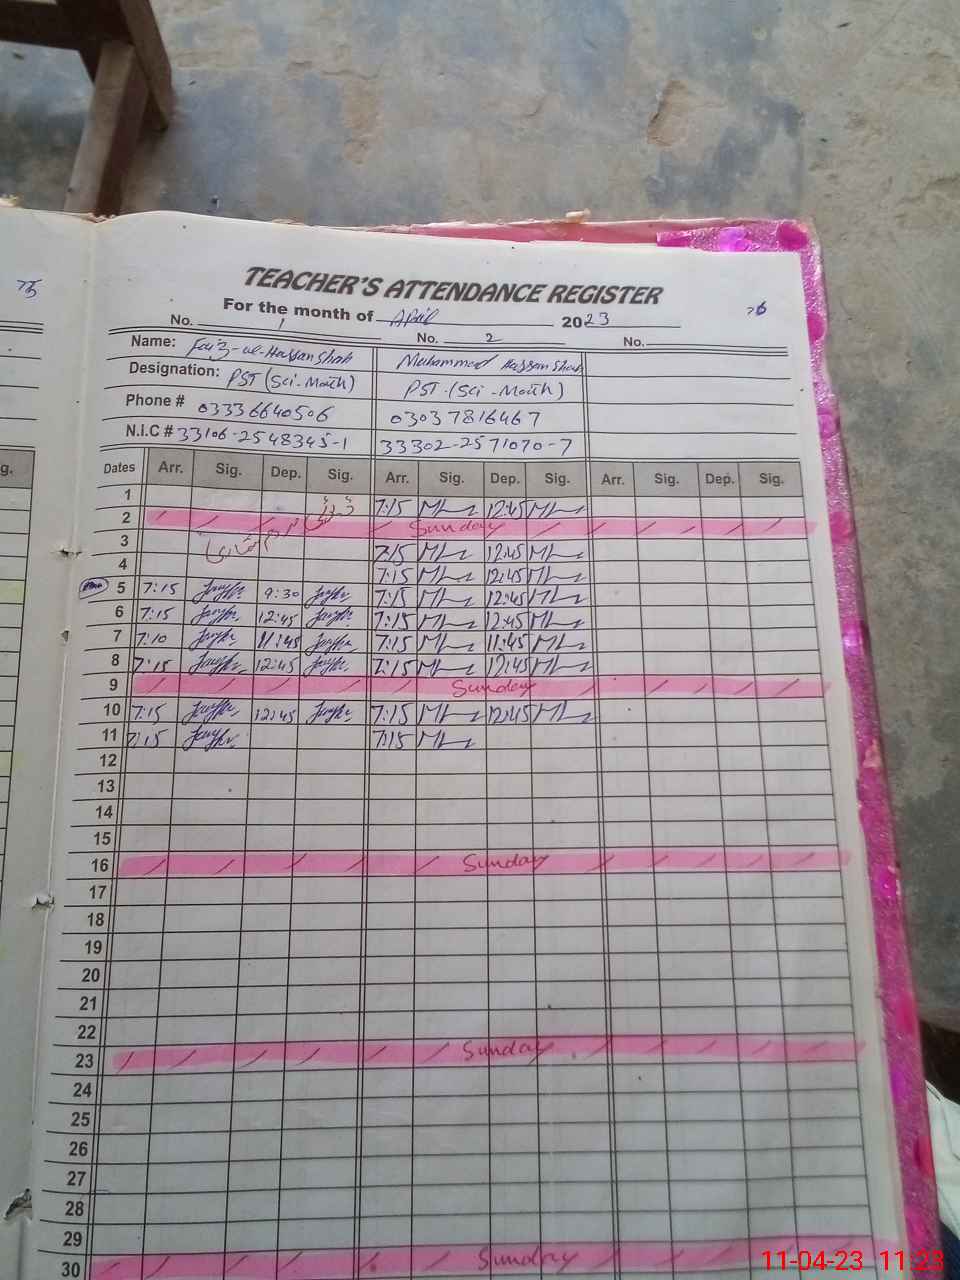 75
TEACHER'S ATTENDANCE REGISTER
For the month of April 2023
76
No. 1 No. 2 No.
Name: Faiz-ul-Hassan Shah Muhammad Hassan Shah
Designation: PST (Sci-Math) PST-(Sci-Math)
Phone # 03336640506 03037816467
N.I.C # 33106-2548345-1 33302-2571070-7
g. Dates Arr. Sig. Dep. Sig. Arr. Sig. Dep. Sig. Arr. Sig. Dep. Sig.
1 7:15 12:45
2 Sunday
3 7:15 12:45
4 7:15 12:45
5 7:15 9:30 7:15 12:45
6 7:15 12:45 7:15 12:45
7 7:10 11:45 7:15 11:45
8 7:15 12:45 7:15 12:45
9 Sunday
10 7:15 12:45 7:15 12:45
11 7:15 7:15
12
13
14
15
16 Sunday
17
18
19
20
21
22
23 Sunday
24
25
26
27
28
29
30 Sunday
11-04-23 11:23